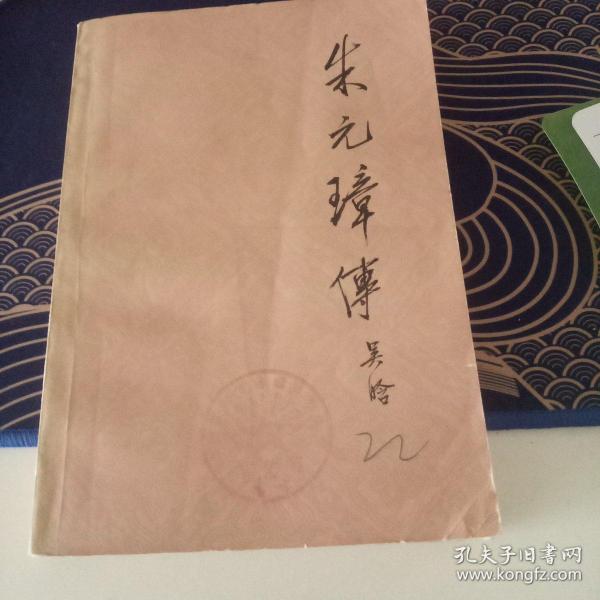 朱元璋傳
吴晗
22
孔夫子旧书网
www.kongfz.com